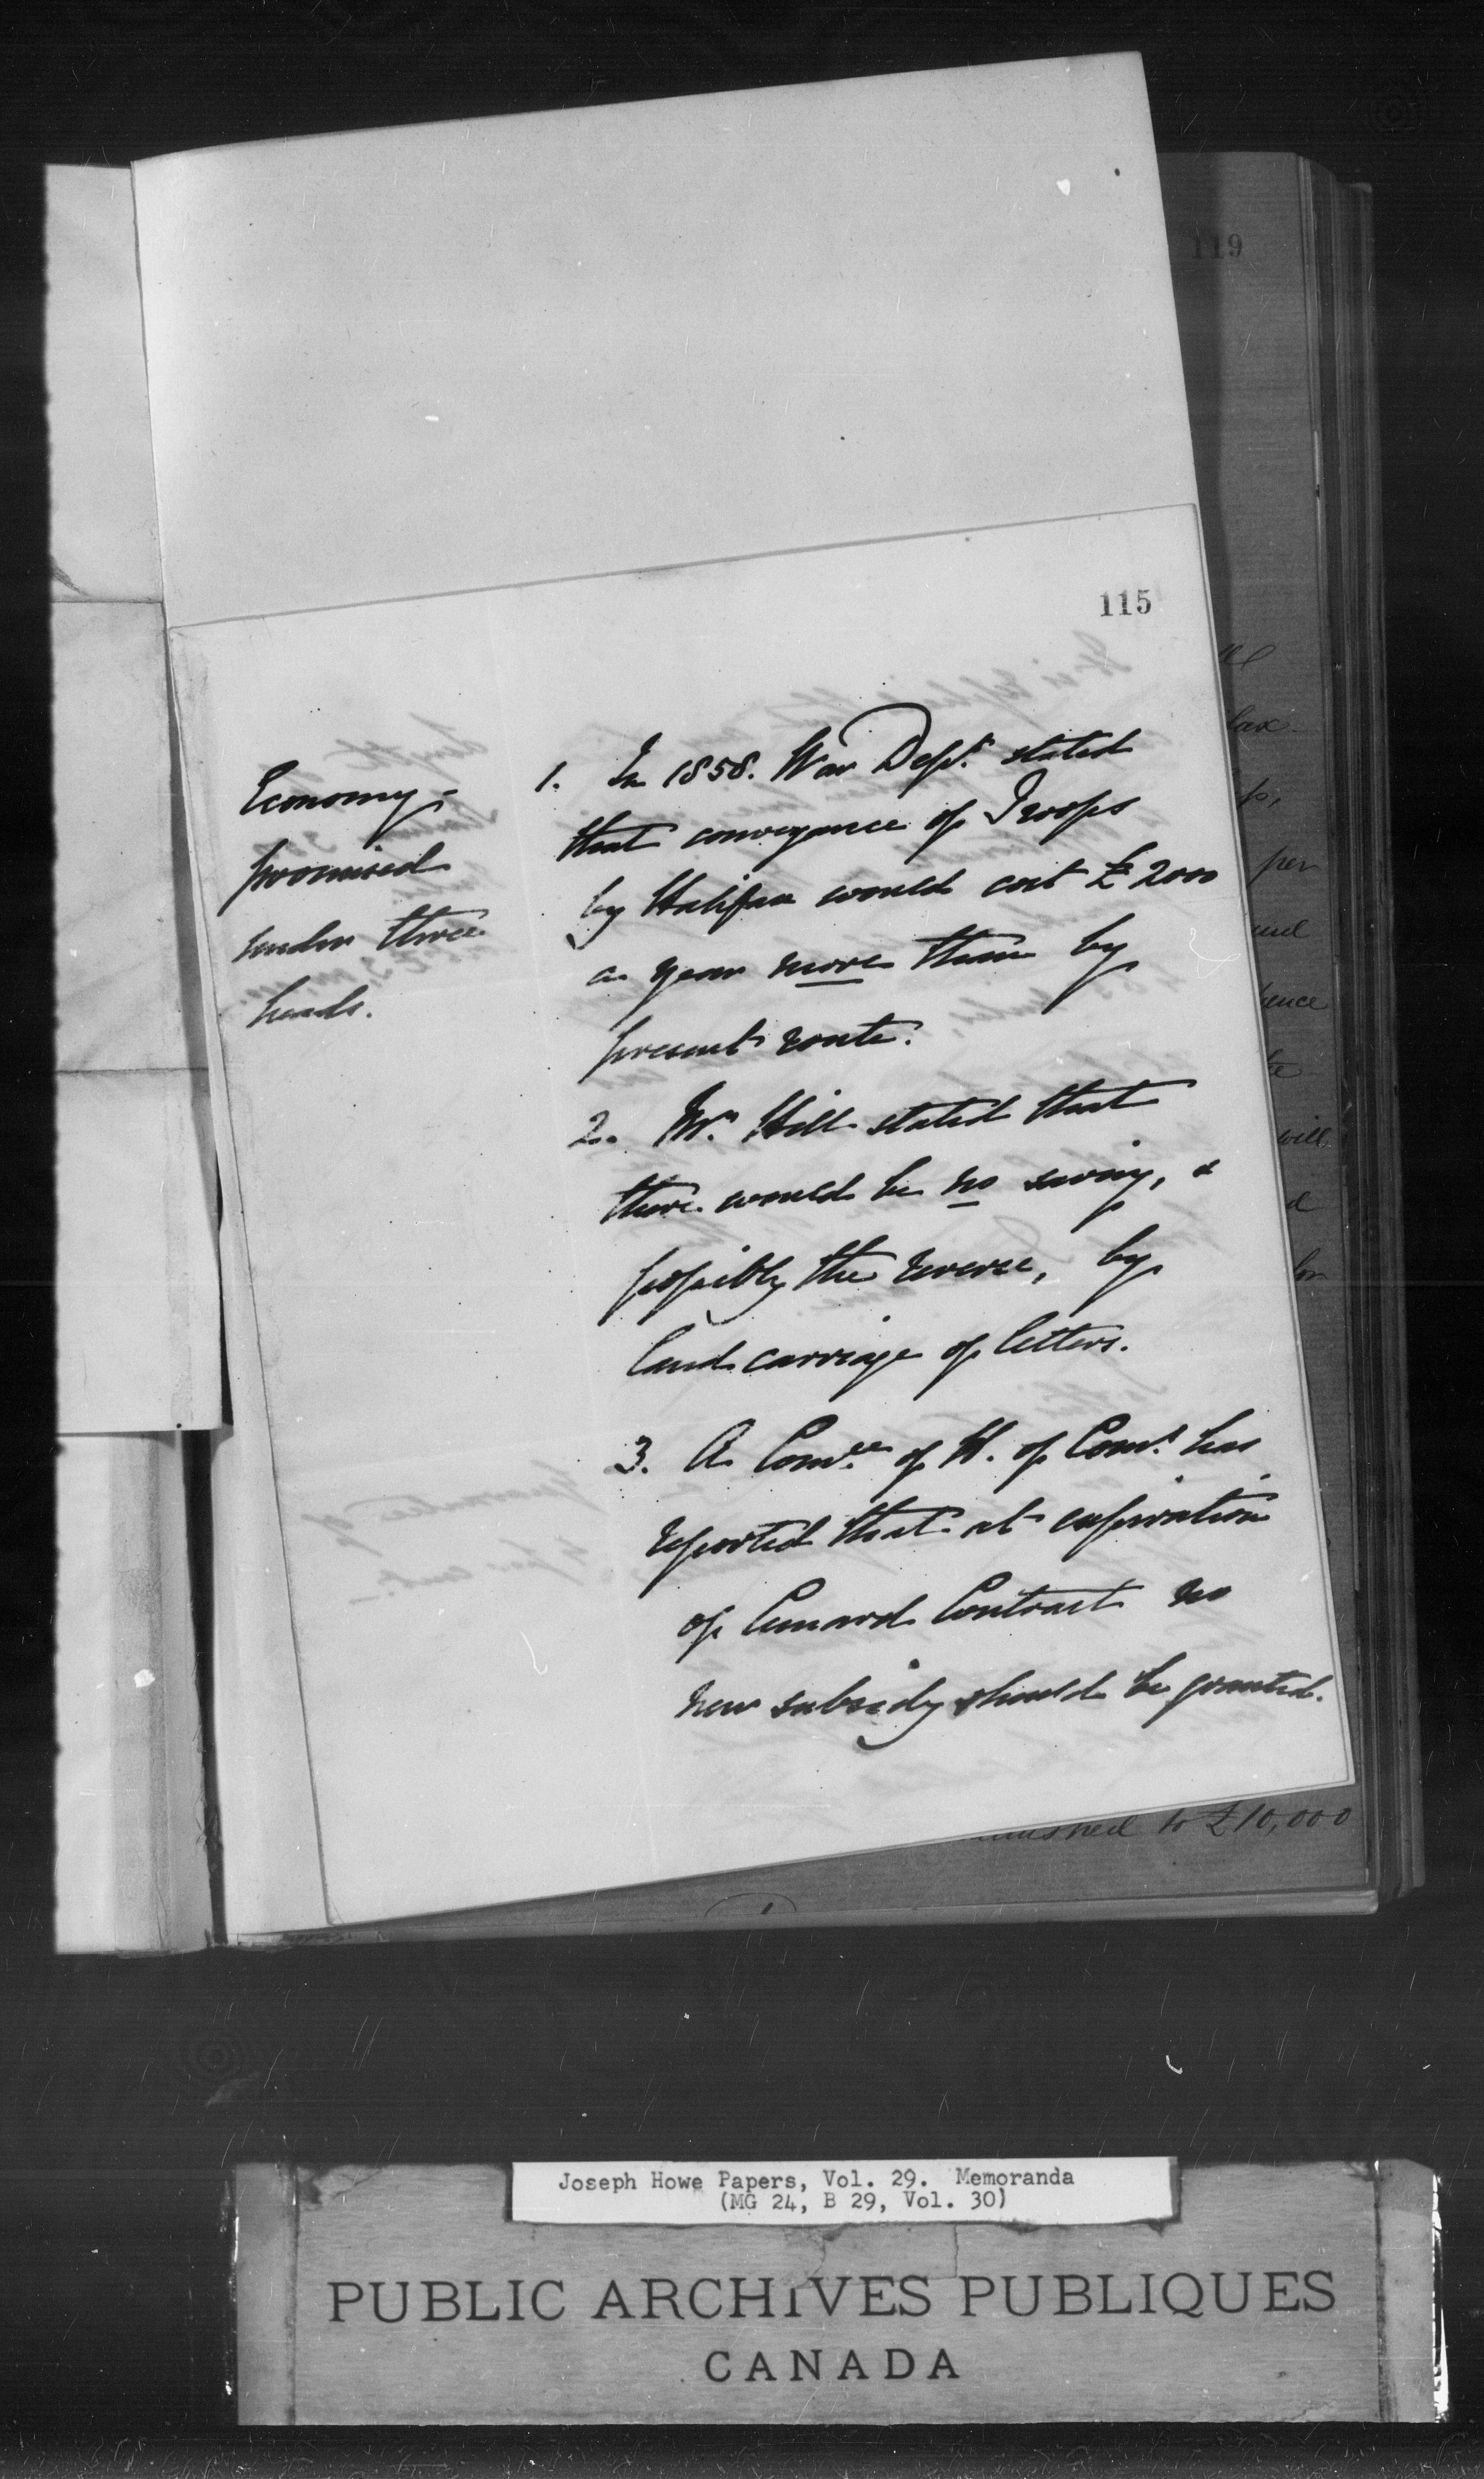 119
115
Economy -
promised
under three
heads.
1. In 1858. War Dept. stated
that conveyance of Troops
by Halifax would cost £2000
a year more than by
present route.
2. Mr. Hill stated that
there would be no saving, &
possibly the reverse, by
land carriage of letters.
3. A Comee. of H. of Coms. has
reported that at expiration
of Cunard Contract no
new subsidy should be granted.
per
will
to £10,000
Joseph Howe Papers, Vol. 29. Memoranda
(MG 24, B 29, Vol. 30)
PUBLIC ARCHIVES PUBLIQUES
CANADA